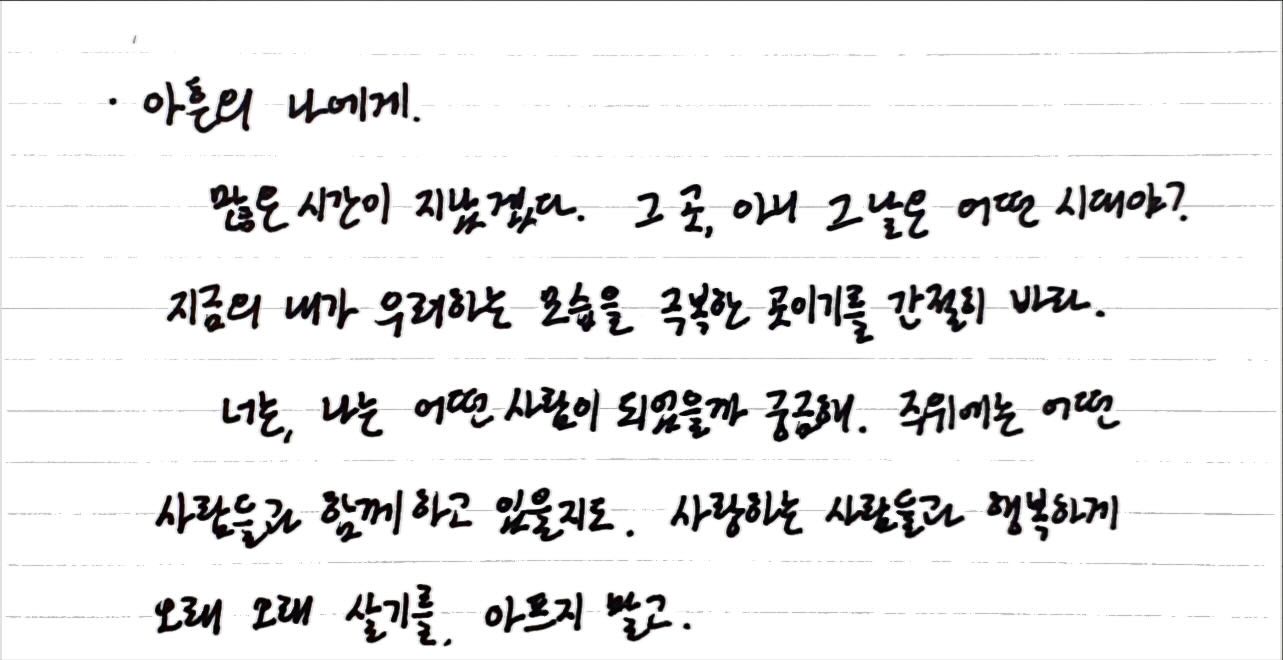 · 아흔의 나에게.
많은 시간이 지났겠다. 그 곳, 아니 그 날은 어떤 시대야?
지금의 내가 우려하는 모습을 극복한 곳이기를 간절히 바라.
너는, 나는 어떤 사람이 되었을까 궁금해. 주위에는 어떤
사람들과 함께하고 있을지도. 사랑하는 사람들과 행복하게
오래 오래 살기를, 아프지 말고.